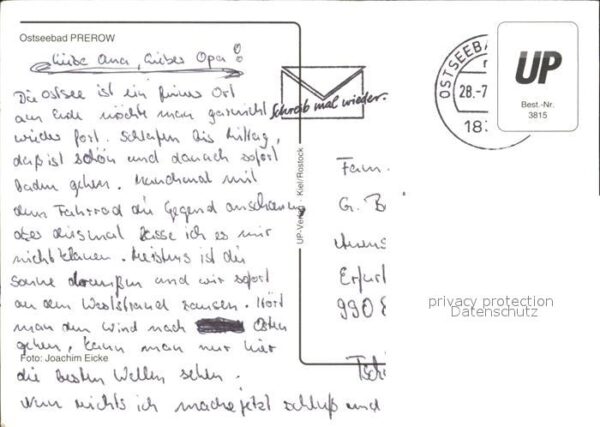 Ostseebad PREROW
Liebe Oma, Lieber Opa!
Die Ostsee ist ein feiner Ort
am Ende möchte man garnicht
wieder fort. Schlafen bis Mittag,
daß ist schön und danach sofort
Baden gehen. Manchmal mit
dem Fahrrad die Gegend anschauen
aber diesmal lasse ich es mir
nicht klauen. Meistens ist die
Sonne draußen und wir sofort
an den Weststrand sausen. Hört
man den Wind nach Osten
gehen, kann man nur hier
Foto: Joachim Eicke
die besten Wellen sehen.
Nun nichts ich mache jetzt schluß und
Schreib mal wieder.
UP-Verlag Kiel/Rostock
OSTSEEBA
28.-7
18
UP
Best.-Nr.
3815
Fam.
G. B
Erfurt
990
Tschü
privacy protection
Datenschutz